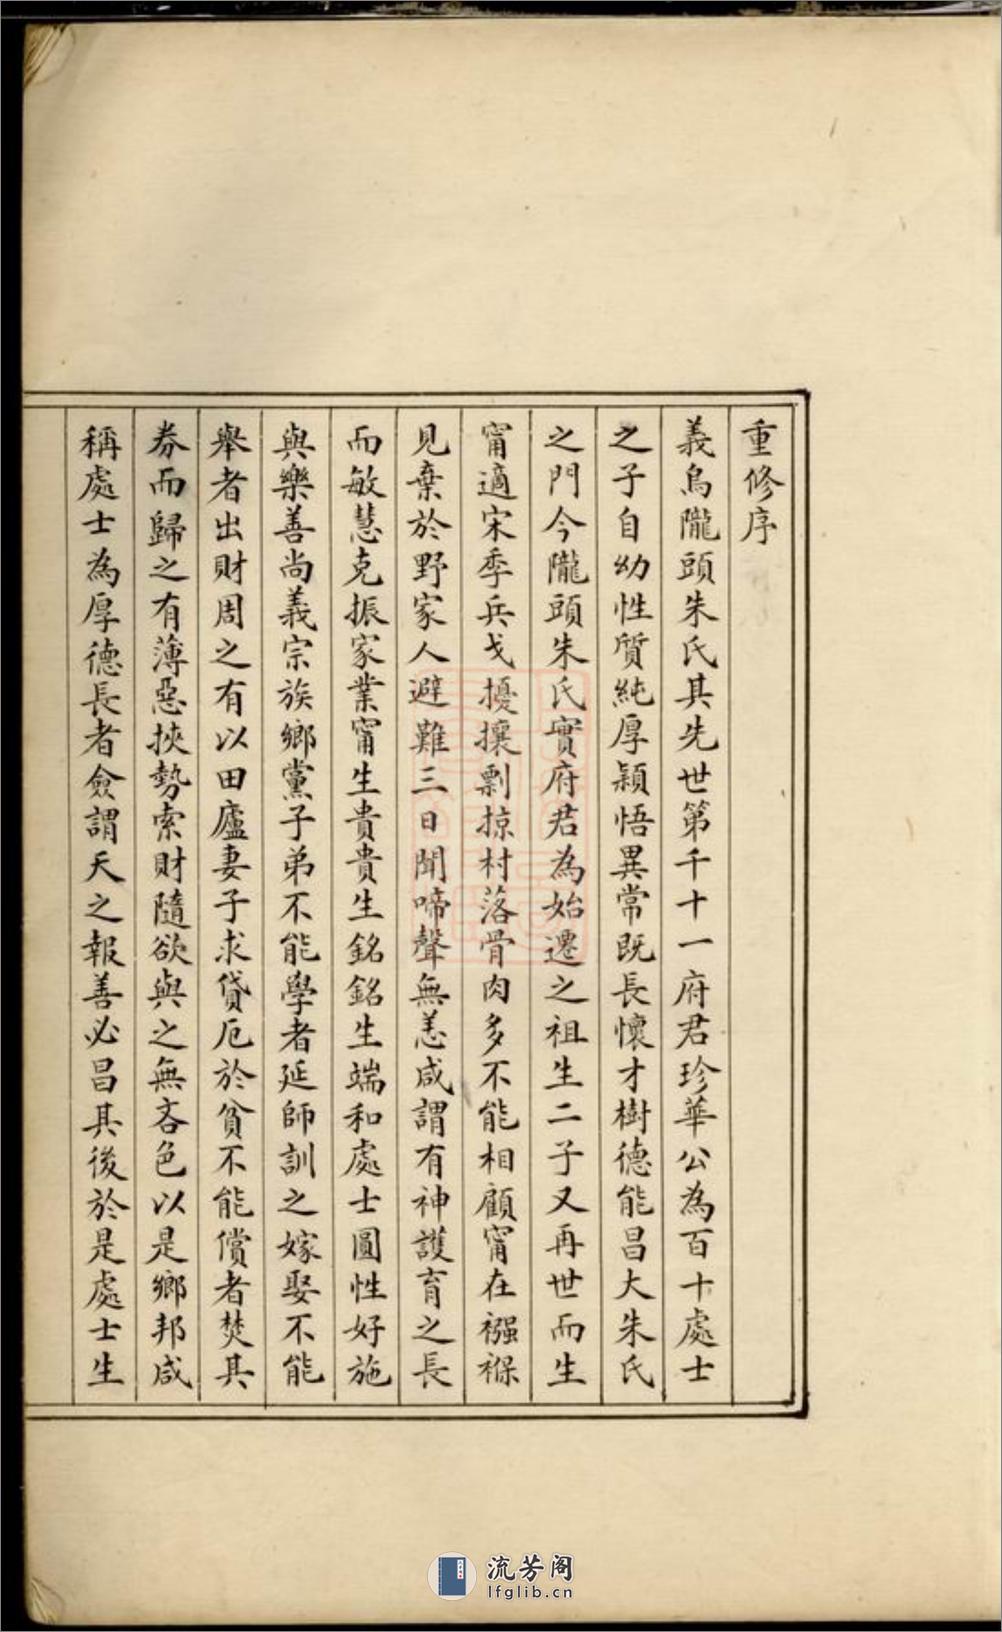 重修序
義烏隴頭朱氏其先世第千十一府君珍華公為百十處士
之子自幼性質純厚穎悟異常既長懷才樹德能昌大朱氏
之門今隴頭朱氏實府君為始遷之祖生二子又再世而生
甯適宋季兵戈擾攘剽掠村落骨肉多不能相顧甯在襁褓
見棄於野家人避難三日聞啼聲無恙咸謂有神護育之長
而敏慧克振家業甯生貴貴生銘銘生端和處士圓性好施
與樂善尚義宗族鄉黨子弟不能學者延師訓之嫁娶不能
舉者出財周之有以田廬妻子求貸厄於貧不能償者焚其
券而歸之有薄惡挾勢索財隨欲與之無吝色以是鄉邦咸
稱處士為厚德長者僉謂天之報善必昌其後於是處士生
流芳阁
lfglib.cn